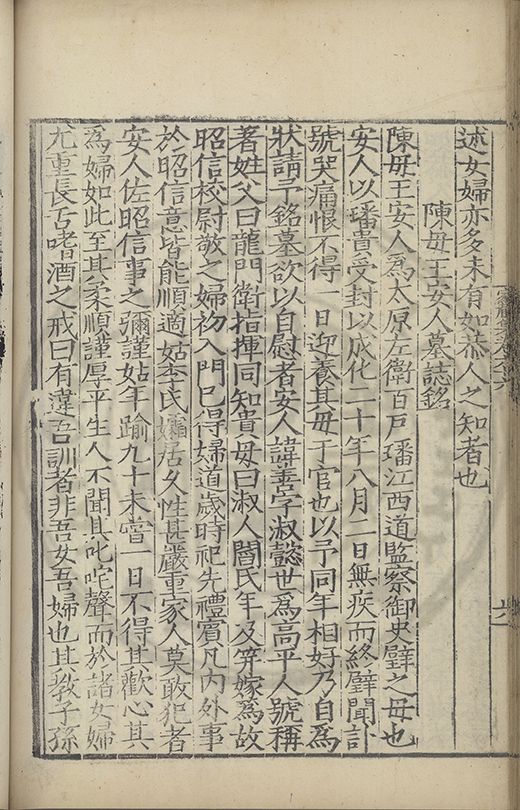 述女婦亦多未有如恭人之知者也
陳母王安人墓誌銘
陳母王安人爲太原左衛百戶璠江西道監察御史璧之母也
安人以璠貴受封以成化二十年八月二日無疾而終璧聞訃
號哭痛恨不得一日迎養其母于官也以予同年相好乃自爲
狀請予銘墓欲以自慰者安人諱善字叔懿世爲高平人號稱
著姓父曰龍門衛指揮同知貴母曰淑人閻氏年及笄嫁爲故
昭信校尉敬之婦初入門已得婦道歲時祀先禮賓凡內外事
於昭信意皆能順適姑李氏孀居久性甚嚴重家人莫敢犯者
安人佐昭信事之彌謹姑年踰九十未嘗一日不得其歡心其
爲婦如此至其柔順謹厚平生人不聞其叱咤聲而於諸女婦
尤重長舌嗜酒之戒曰有違吾訓者非吾女吾婦也其敎子孫